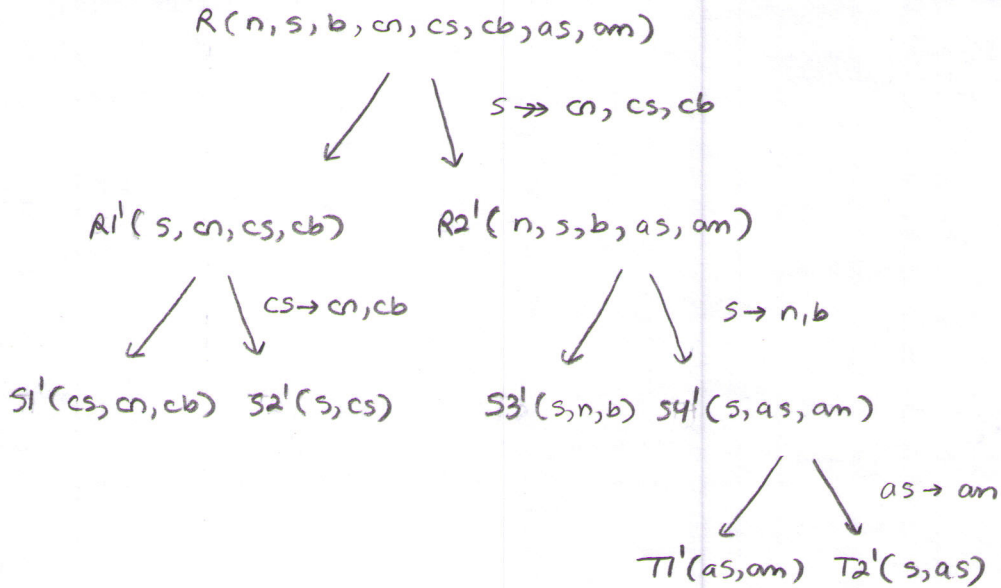 R(n, s, b, cn, cs, cb, as, am)
s ↠ cn, cs, cb
R1'(s, cn, cs, cb) R2'(n, s, b, as, am)
cs → cn, cb
s → n, b
S1'(cs, cn, cb) S2'(s, cs) S3'(s, n, b) S4'(s, as, am)
as → am
T1'(as, am) T2'(s, as)